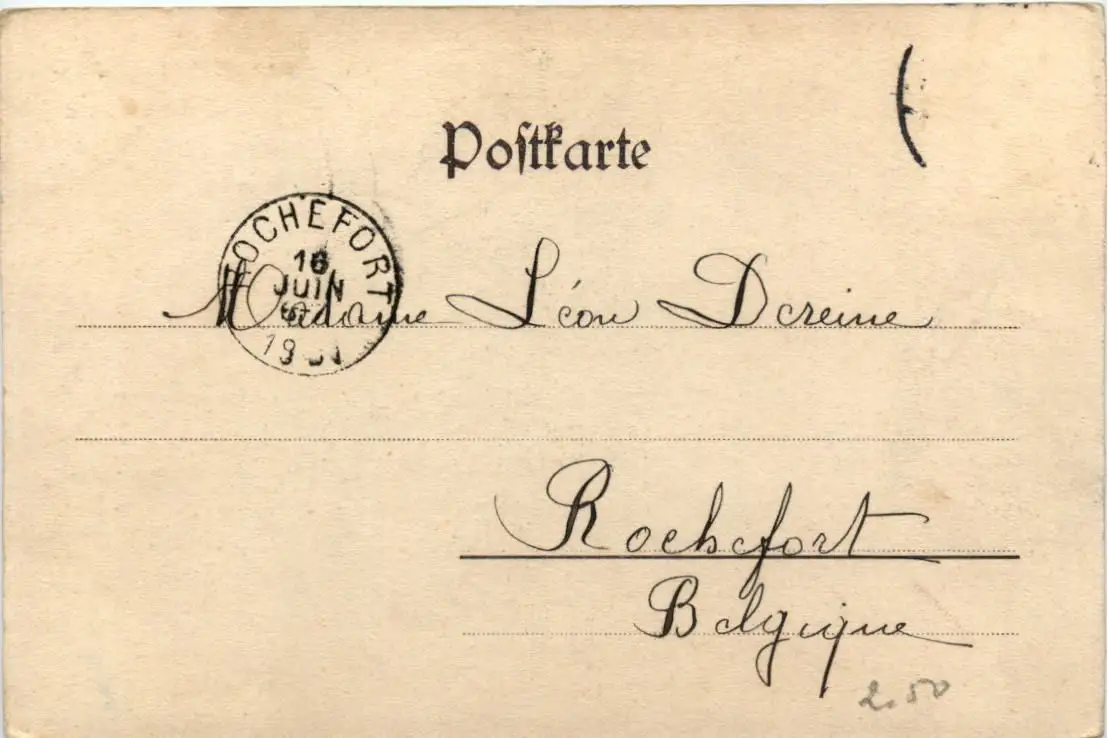 Postkarte
ROCHEFORT
16
JUIN
Madame Léon Dereine
Rochefort
Belgique
2.50